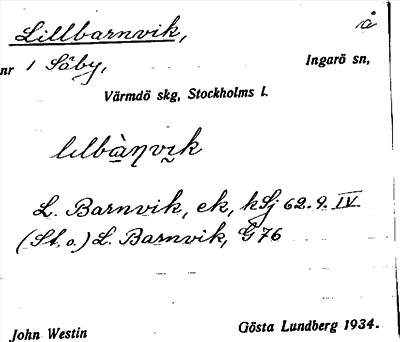 Lillbarnvik, å
nr 1 Säby, Ingarö sn,
Värmdö skg, Stockholms l.
lılbàṇvı̰k
L. Barnvik, ek, kSj 62.9. IV
(St. o.) L. Barnvik, G 76
John Westin Gösta Lundberg 1934.